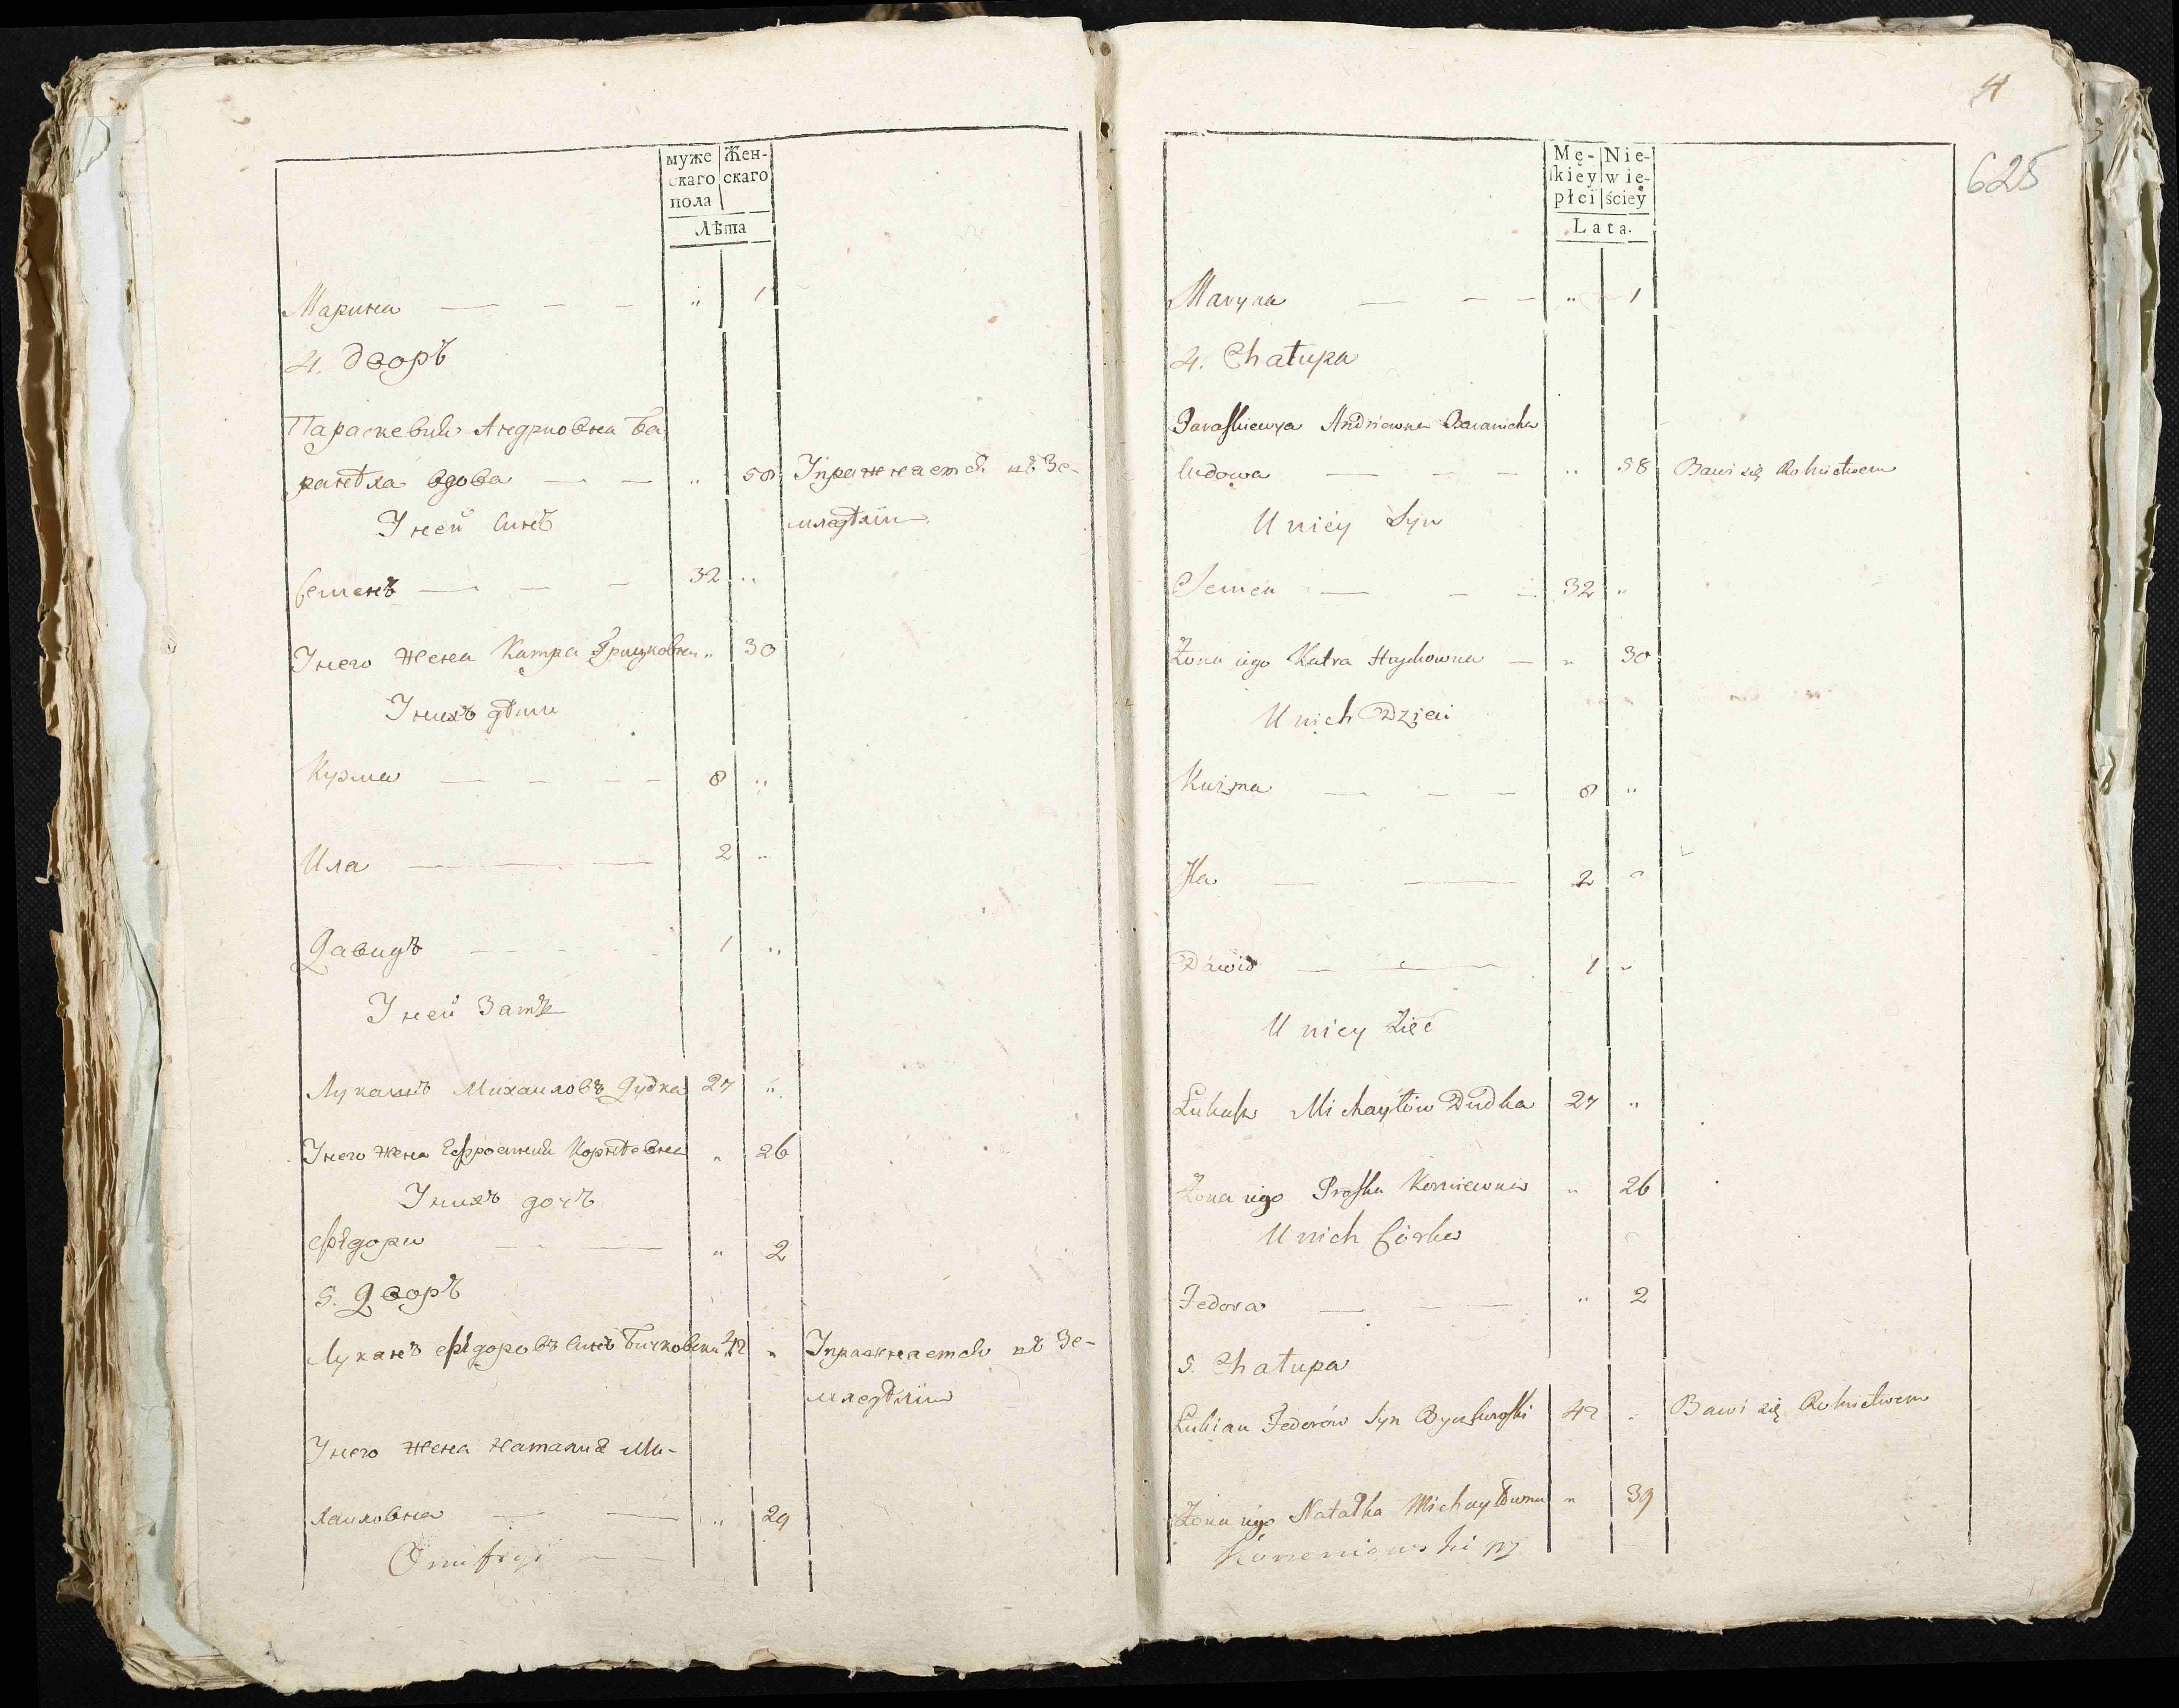 муже Жен-
скаго скаго
пола
Лѣта
Марина — — — " 1
4. Дворъ
Параскевия Андриовна Ба
ранѣха вдова — — " 58 Упражнается въ Зе-
мледѣлїи
У ней синъ
Семенъ — — — 32 "
У него жена Катра Грицковна " 30
У нихъ дѣти
Кузма — — — — 8 "
Ила — — — 2 "
Давидъ — — — 1 "
У ней Зать
Лукашъ Михаиловъ Дудка 27 "
У него жена Ефросиния Корнѣевна " 26
У нихъ дочъ
Фѣдора — — " 2
5. Дворъ
Лукянъ Фѣдоровъ синъ Бичковски 42 " Упражнается въ Зе-
мледѣлїи
У него жена Наталия Ми-
хаиловна — — " 29
4
625
Mę- Nie-
kiey wie-
płci ściey
Lata.
Maryna — — — " 1
4. Chałupa
Paraskiewya Andriewna Baranicha
Wdowa — — — " 58 Bawi się Rolnictwem
U niey Syn
Semen — — — 32 "
Żona iego Katra Hryckowna — " 30
U nich Dzieci
Kuzma — — — 8 "
Ila — — 2 "
Dawid — — 1 "
U niey Zięć
Łukasz Michayłów Dudka 27 "
Żona iego Proska Korniewna " 26
U nich Córka
Fedora — — — " 2
5. Chałupa
Łukian Fedorów Syn Byczkowski 42 " Bawi się Rolnictwem
Żona iego Natałka Michayłowna " 39